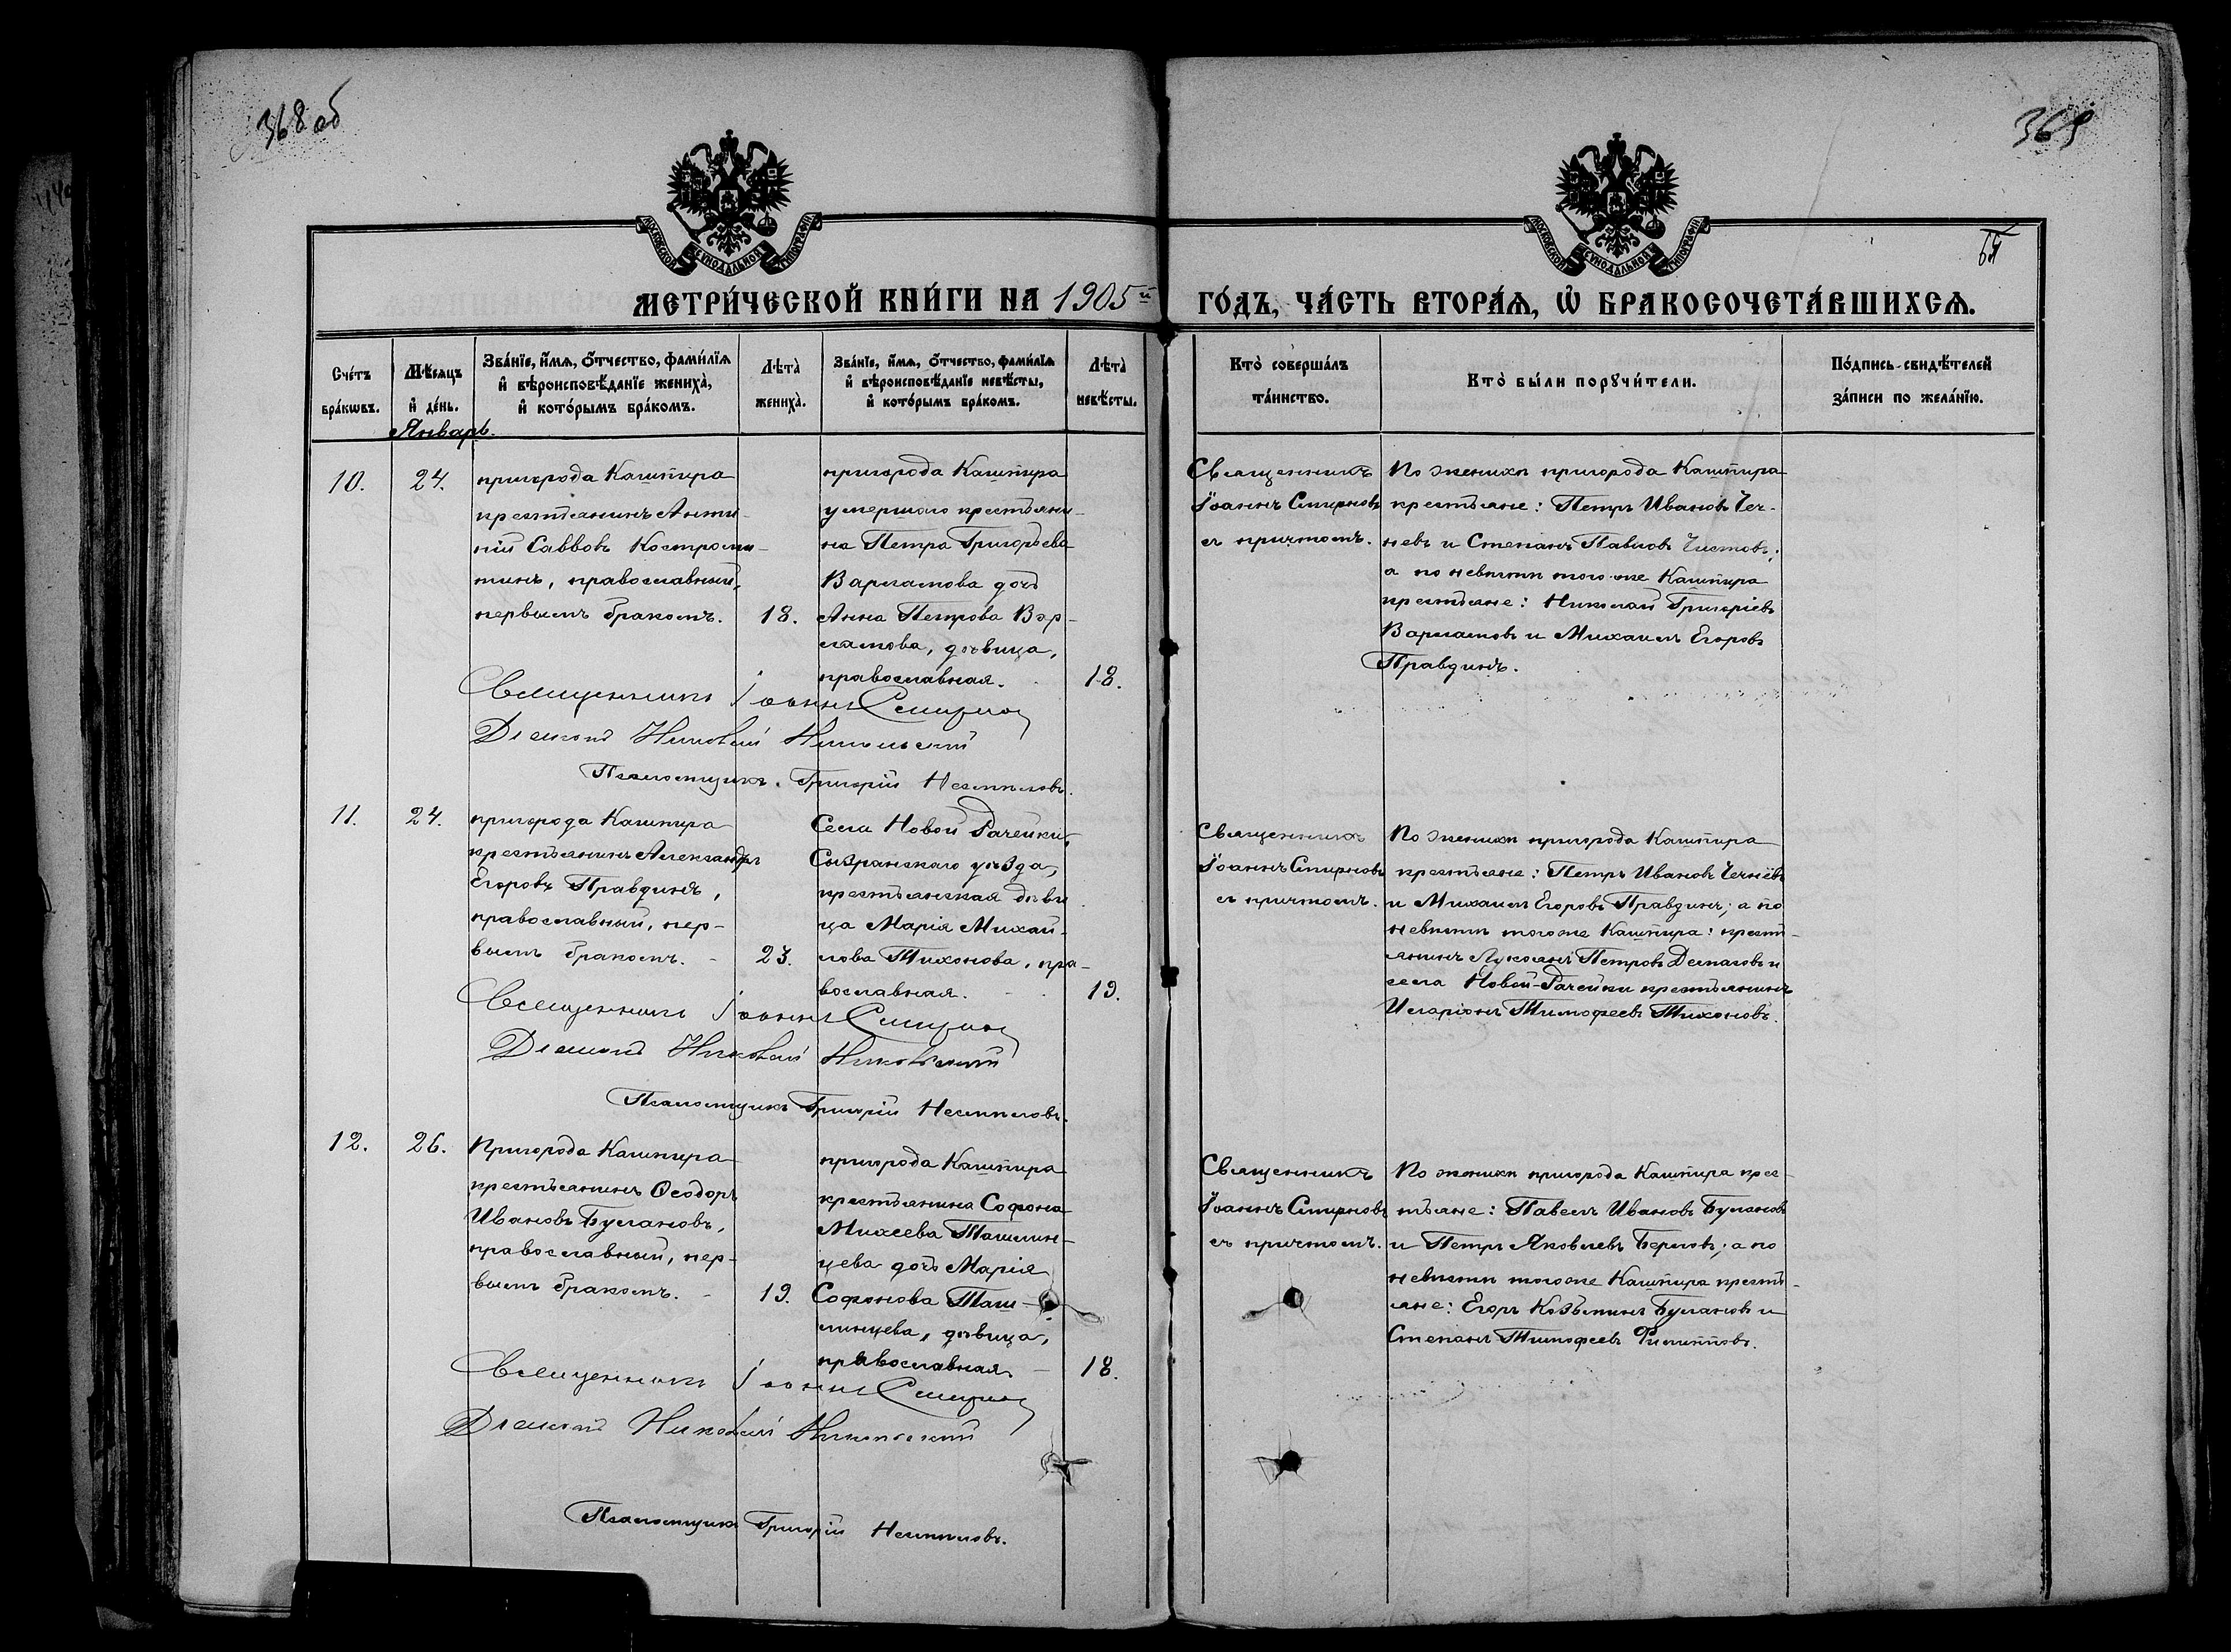 368 об
369
МОСКОВСКОЙ СУНОДАЛЬНОЙ ТИПОГРАФІИ
МОСКОВСКОЙ СУНОДАЛЬНОЙ ТИПОГРАФІИ
МЕТРИ́ЧЕСКОЙ КНИ́ГИ НА 1905й ГО́ДЪ, ЧА́СТЬ ВТОРА́Ѧ, Ѡ҆ БРАКОСОЧЕТА́ВШИХСѦ.
Сче́тъ
бра́кѡвъ.
Мѣ́сѧцъ
и҆ де́нь.
Зва́нїе, и҆́мѧ, ѻ҆́тчество, фами́лїѧ
и҆ вѣроисповѣ́данїе жениха̀,
и҆ кото́рымъ бра́комъ.
Лѣта̀
жениха̀.
Зва́нїе, и҆́мѧ, ѻ҆́тчество, фами́лїѧ
и҆ вѣроисповѣ́данїе невѣ́сты,
и҆ кото́рымъ бра́комъ.
Лѣта̀
невѣ́сты.
Кто̀ соверша́лъ
та́инство.
Кто̀ бы́ли порꙋчи́тели.
По́дпись свидѣ́телей
за́писи по жела́нїю.
Январь.
10.
24.
пригорода Кашпира
крестьянинъ Анти-
пій Саввовъ Костроми-
тинъ, православный,
первымъ бракомъ.
18.
пригорода Кашпира
умершаго крестьяни-
на Петра Григорьева
Варламова дочь
Анна Петрова Вар-
ламова, дѣвица,
православная.
18.
Священникъ
Іоаннъ Смирновъ
съ причтомъ.
По женихѣ пригорода Кашпира
крестьяне: Петръ Ивановъ Чеч-
невъ и Степанъ Павловъ Чистовъ;
а по невѣстѣ того-же Кашпира
крестьяне: Николай Григоріевъ
Варламовъ и Михаилъ Егоровъ
Правдинъ.
Священникъ Іоаннъ Смирнов
Діаконъ Николай Никольскій
Псаломщикъ Григорій Несмѣловъ.
11.
24.
пригорода Кашпира
крестьянинъ Александръ
Егоровъ Правдинъ,
православный, пер-
вымъ бракомъ.
23.
Села Новой Рачейки,
Сызранскаго уѣзда,
крестьянская дѣви-
ца Марія Михай-
лова Тихонова, пра-
вославная.
19.
Священникъ
Іоаннъ Смирновъ
съ причтомъ.
По женихѣ пригорода Кашпира
крестьяне: Петръ Ивановъ Чечневъ
и Михаилъ Егоровъ Правдинъ; а по
невѣстѣ тогоже Кашпира: крестъ-
янинъ Лукьянъ Петровъ и
села Новой-Рачейки крестьянинъ
Иларіонъ Тимофеевъ Тихоновъ.
Священникъ Іоаннъ Смирнов
Діаконъ Николай Никольскій
Псаломщикъ Григорій Несмѣловъ.
12.
26.
Пригорода Кашпира
крестьянинъ Ѳеодоръ
Ивановъ Булановъ,
православный, пер-
вымъ бракомъ.
19.
пригорода Кашпира
крестьянина Софона
Михеева Ташлин-
цева дочь Марія
Софонова Таш-
линцева, дѣвица,
православная
18.
Священникъ
Іоаннъ Смирновъ
съ причтомъ.
По женихѣ пригорода Кашпира крес-
тьяне: Павелъ Ивановъ Булановъ
и Петръ Яковлевъ Берловъ; а по
невѣстѣ тогоже Кашпира кресть-
яне: Егоръ Козьминъ Булановъ и
Степанъ Тимофеевъ Филипповъ.
Священникъ Іоаннъ Смирнов
Діаконъ Николай Никольскій
Псаломщикъ Григорій Несмѣловъ.